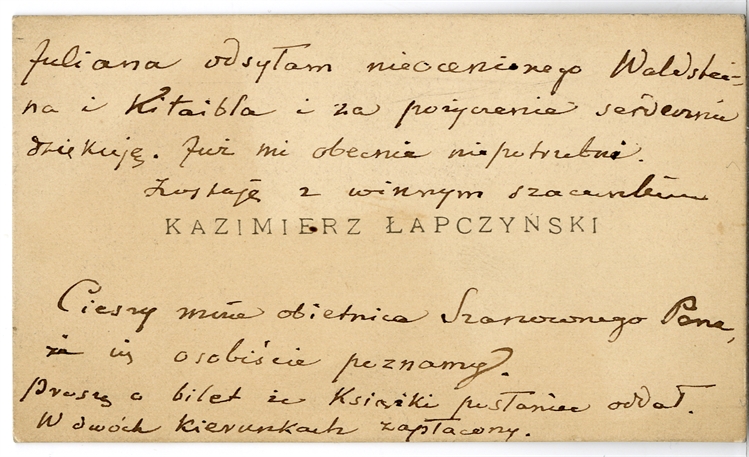 Juliana odsyłam nieocenionego Waldstei-
na i Kitaibla i za pożyczenie serdecznie
dziękuję. Już mi obecnie niepotrzebni.
Zostaję z winnym szacunkiem
KAZIMIERZ ŁAPCZYŃSKI
Cieszy mnie obietnica Szanownego Pana,
że się osobiście poznamy.
Proszę o bilet że Książki posłaniec oddał.
W dwóch kierunkach zapłacony.